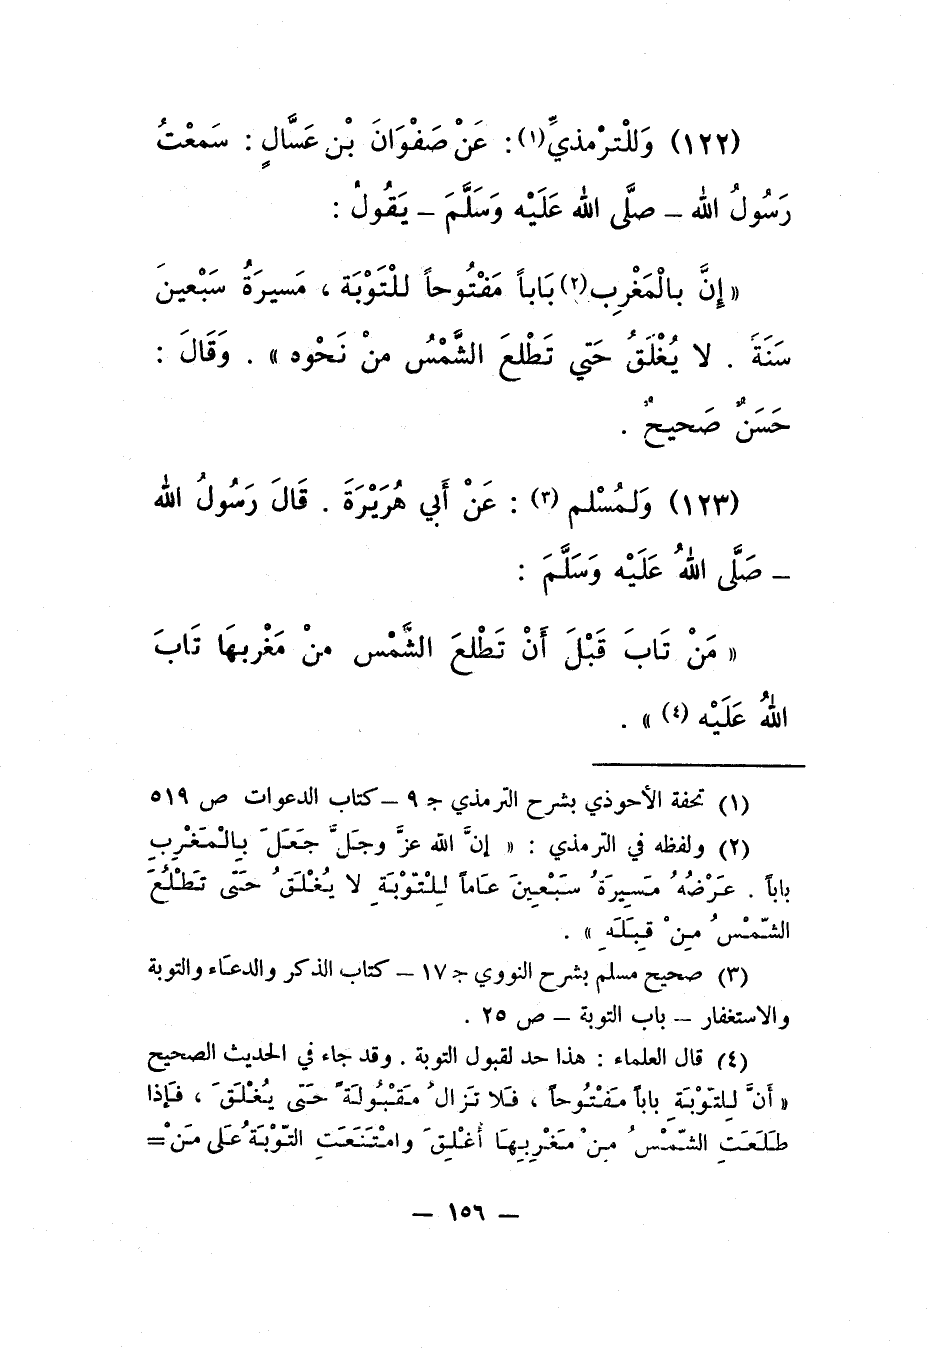 (١٢٢) وَللْترْمذيِّ(١): عَنْ صَفْوَانَ بْن عَسَّالٍ : سَمعْتُ
رَسُولُ الله ـ صلَّى الله عَلَيْه وَسَلَّمَ ـ يَقُولُ :
« إنَّ بالْمَغْرِب(٢) بَاباً مَفْتُوحاً للْتَوْبَة ، مَسيرَةُ سَبْعينَ
سَنَةَ . لا يُغْلَقُ حَتي تَطْلعَ الشَّمْسُ منْ نَحْوه » . وَقَالَ :
حَسَنٌ صَحيحٌ .
(١٢٣) وَلمُسْلم (٣) : عَنْ أَبي هُرَيْرَةَ . قَالَ رَسُولُ الله
ـ صَلَّى اللهُ عَلَيْه وَسَلَّمَ :
« مَنْ تَابَ قَبْلَ أَنْ تَطْلعَ الشَّمْس منْ مَغْربهَا تَابَ
اللهُ عَلَيْه (٤) » .
(١) تحفة الأحوذي بشرح الترمذي جـ ٩ ـ كتاب الدعوات ص ٥١٩
(٢) ولفظه في الترمذي : « إنَّ الله عزَّ وجَلَّ جَعَلَ بِالْمَغْرِبِ
باباً . عَرْضُهُ مَسِيرَةُ سَبْعِينَ عَاماً لِلتَّوْبَةِ لا يُغْلَقُ حَتّى تَطْلُعَ
الشّمْسُ مِنْ قِبَلِهِ » .
(٣) صحيح مسلم بشرح النووي جـ ١٧ ـ كتاب الذكر والدعاء والتوبة
والاستغفار ـ باب التوبة ـ ص ٢٥ .
(٤) قال العلماء : هذا حد لقبول التوبة . وقد جاء في الحديث الصحيح
« أنَّ لِلتّوْبَةِ باباً مَفْتُوحاً ، فَلا تزالُ مقْبُولَةً حَتّى يُغْلَقَ ، فَإذا
طَلَعَتِ الشّمْسُ مِنْ مَغْرِبِهَا أُغْلِقَ وامْتَنَعَتِ التّوْبَةُ عَلى مَنْ=
ـ ١٥٦ ـ